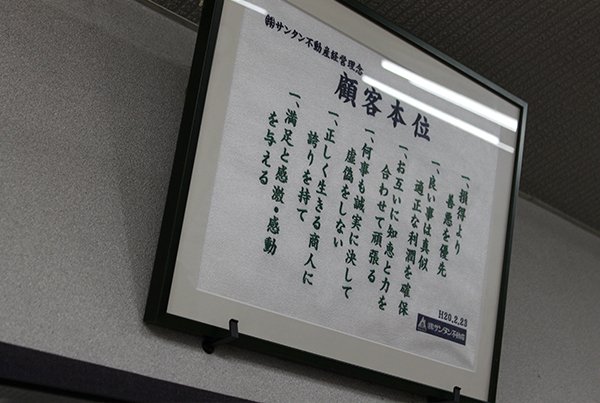 ㈱サンタン不動産経営理念
顧客本位
一、損得より
善悪を優先
一、良い事は真似
適正な利潤を確保
一、お互いに知恵と力を
合わせて頑張る
一、何事も誠実に決して
虚偽をしない
一、正しく生きる商人に
誇りを持て
一、満足と感激・感動
を与える
H20.2.23
㈱サンタン不動産